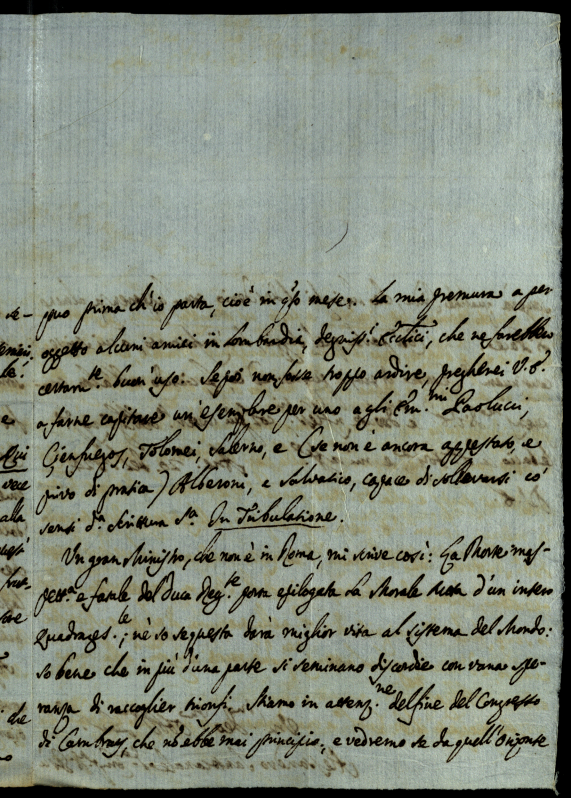 puo prima ch'io parta, cioè in q.sto mese. La mia premura a per
oggetto alcuni amici in Lombardia, degniss.i Eccl.ici, che ne farebbero
certam.te buon'uso. Se poi non fosse troppo ardire, pregherei V.S.
a farne capitare un'esemplare per uno a gli Em.mi Paolucci,
Cienfuegos, Tolomei, Salerno, e (se non è ancora appestato, e
privo di pratica) Alberoni, e Salvatico, capace di sollevarsi co'
sensi d.a Scrittura S.a In Tribulatione.
Un gran Ministro, che non è in Roma, mi scrive così: La Morte
e fatale del Duca Reg.te porta epilogata la Morale tutta d'un intero
Quadrages.le; nè so se questa darà miglior vita al Sistema del Mondo:
so bene che in più d'una parte si seminano discordie con vana spe-
ranza di raccoglier trionfi. Stiamo in attenz.ne del fine del Congresso
di Cambray, che nō ebbe mai principio, e vedremo se da quell'Orizonte